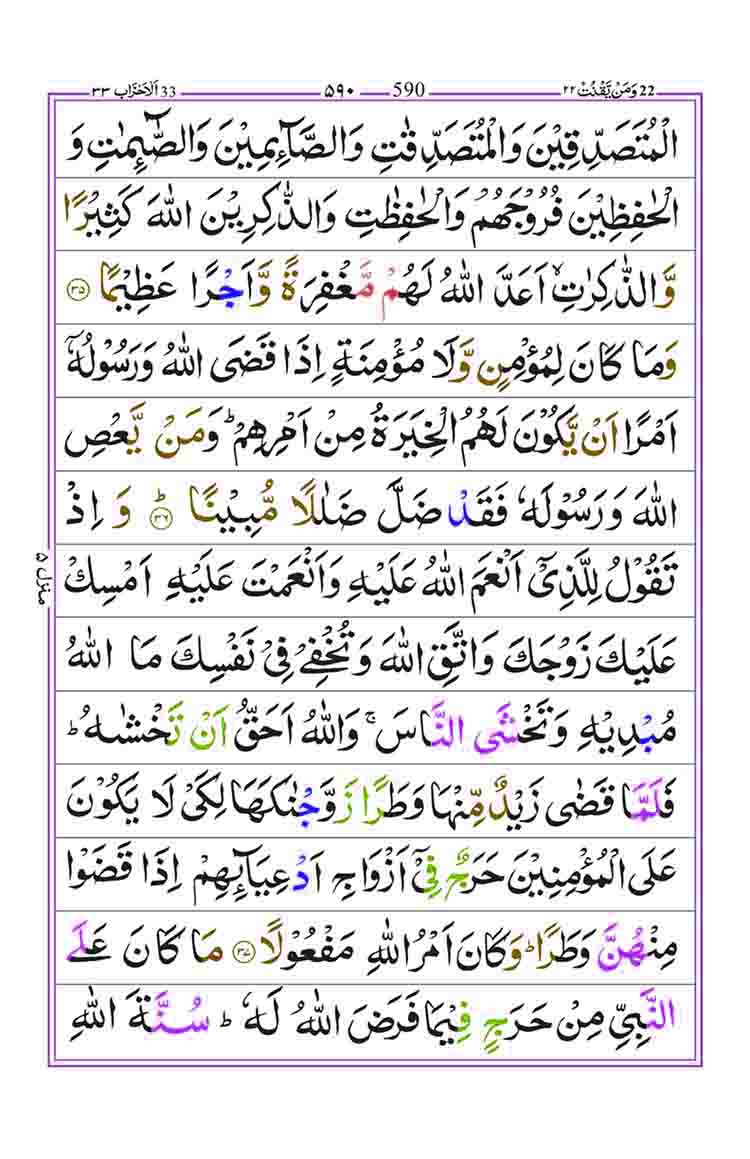 22 وَمَنْ يَّقْنُتْ ٢٢ 590 ۵۹۰ 33 اَلْاَحْزَاب ٣٣
الْمُتَصَدِّقِيْنَ وَالْمُتَصَدِّقٰتِ وَالصَّآئِمِيْنَ وَالصّٰٓئِمٰتِ وَ
الْحٰفِظِيْنَ فُرُوْجَهُمْ وَالْحٰفِظٰتِ وَالذّٰكِرِيْنَ اللّٰهَ كَثِيْرًا
وَّالذّٰكِرٰتِ ۙ اَعَدَّ اللّٰهُ لَهُمْ مَّغْفِرَةً وَّاَجْرًا عَظِيْمًا ﴿۳۵﴾
وَمَا كَانَ لِمُؤْمِنٍ وَّلَا مُؤْمِنَةٍ اِذَا قَضَى اللّٰهُ وَرَسُوْلُهٗۤ
اَمْرًا اَنْ يَّكُوْنَ لَهُمُ الْخِيَرَةُ مِنْ اَمْرِهِمْ ؕ وَمَنْ يَّعْصِ
اللّٰهَ وَرَسُوْلَهٗ فَقَدْ ضَلَّ ضَلٰلًا مُّبِيْنًا ﴿۳۶﴾ؕ وَ اِذْ
تَقُوْلُ لِلَّذِيْۤ اَنْعَمَ اللّٰهُ عَلَيْهِ وَاَنْعَمْتَ عَلَيْهِ اَمْسِكْ
منزل ۵
عَلَيْكَ زَوْجَكَ وَاتَّقِ اللّٰهَ وَتُخْفِيْ فِيْ نَفْسِكَ مَا اللّٰهُ
مُبْدِيْهِ وَتَخْشَى النَّاسَ ۚ وَاللّٰهُ اَحَقُّ اَنْ تَخْشٰىهُ ؕ
فَلَمَّا قَضٰى زَيْدٌ مِّنْهَا وَطَرًا زَوَّجْنٰكَهَا لِكَيْ لَا يَكُوْنَ
عَلَى الْمُؤْمِنِيْنَ حَرَجٌ فِيْۤ اَزْوَاجِ اَدْعِيَآئِهِمْ اِذَا قَضَوْا
مِنْهُنَّ وَطَرًا ؕ وَكَانَ اَمْرُ اللّٰهِ مَفْعُوْلًا ﴿۳۷﴾ مَا كَانَ عَلَى
النَّبِيِّ مِنْ حَرَجٍ فِيْمَا فَرَضَ اللّٰهُ لَهٗ ؕ سُنَّةَ اللّٰهِ